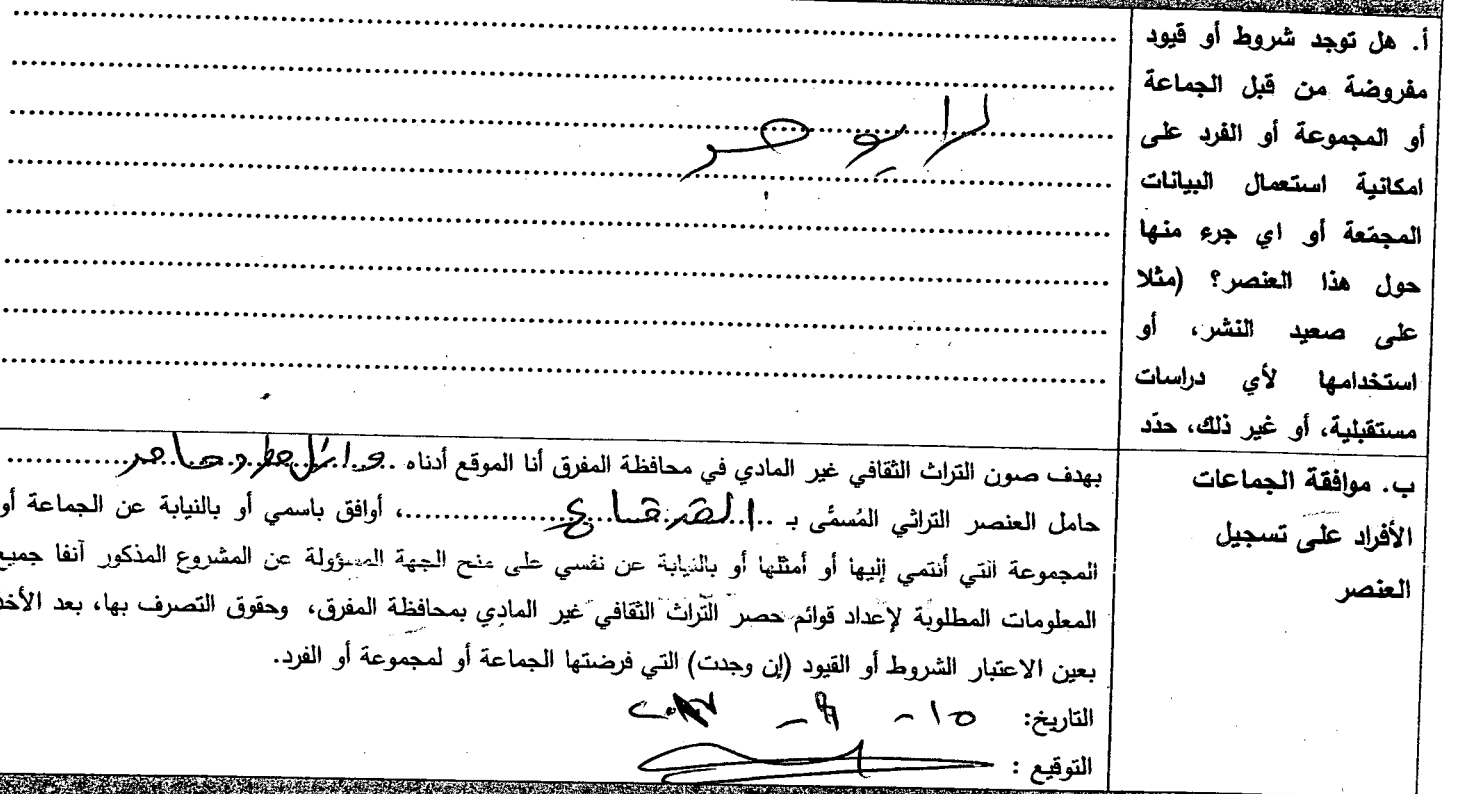 أ. هل توجد شروط أو قيود
مفروضة من قبل الجماعة
أو المجموعة أو الفرد على
امكانية استعمال البيانات
المجمّعة أو اي جرء منها
حول هذا العنصر؟ (مثلا
على صعيد النشر، أو
استخدامها لأي دراسات
مستقبلية، أو غير ذلك، حدّد
لا يوجد
ب. موافقة الجماعات
الأفراد على تسجيل
العنصر
بهدف صون التراث الثقافي غير المادي في محافظة المفرق أنا الموقع أدناه
حامل العنصر التراثي المُسمَّى بـ ..........، أوافق باسمي أو بالنيابة عن الجماعة أو
المجموعة التي أنتمي إليها أو أمثلها أو بالنيابة عن نفسي على منح الجهة المسؤولة عن المشروع المذكور آنفا جميع
المعلومات المطلوبة لإعداد قوائم حصر التراث الثقافي غير المادي بمحافظة المفرق، وحقوق التصرف بها، بعد الأخذ
بعين الاعتبار الشروط أو القيود (إن وجدت) التي فرضتها الجماعة أو لمجموعة أو الفرد.
التاريخ:
التوقيع :